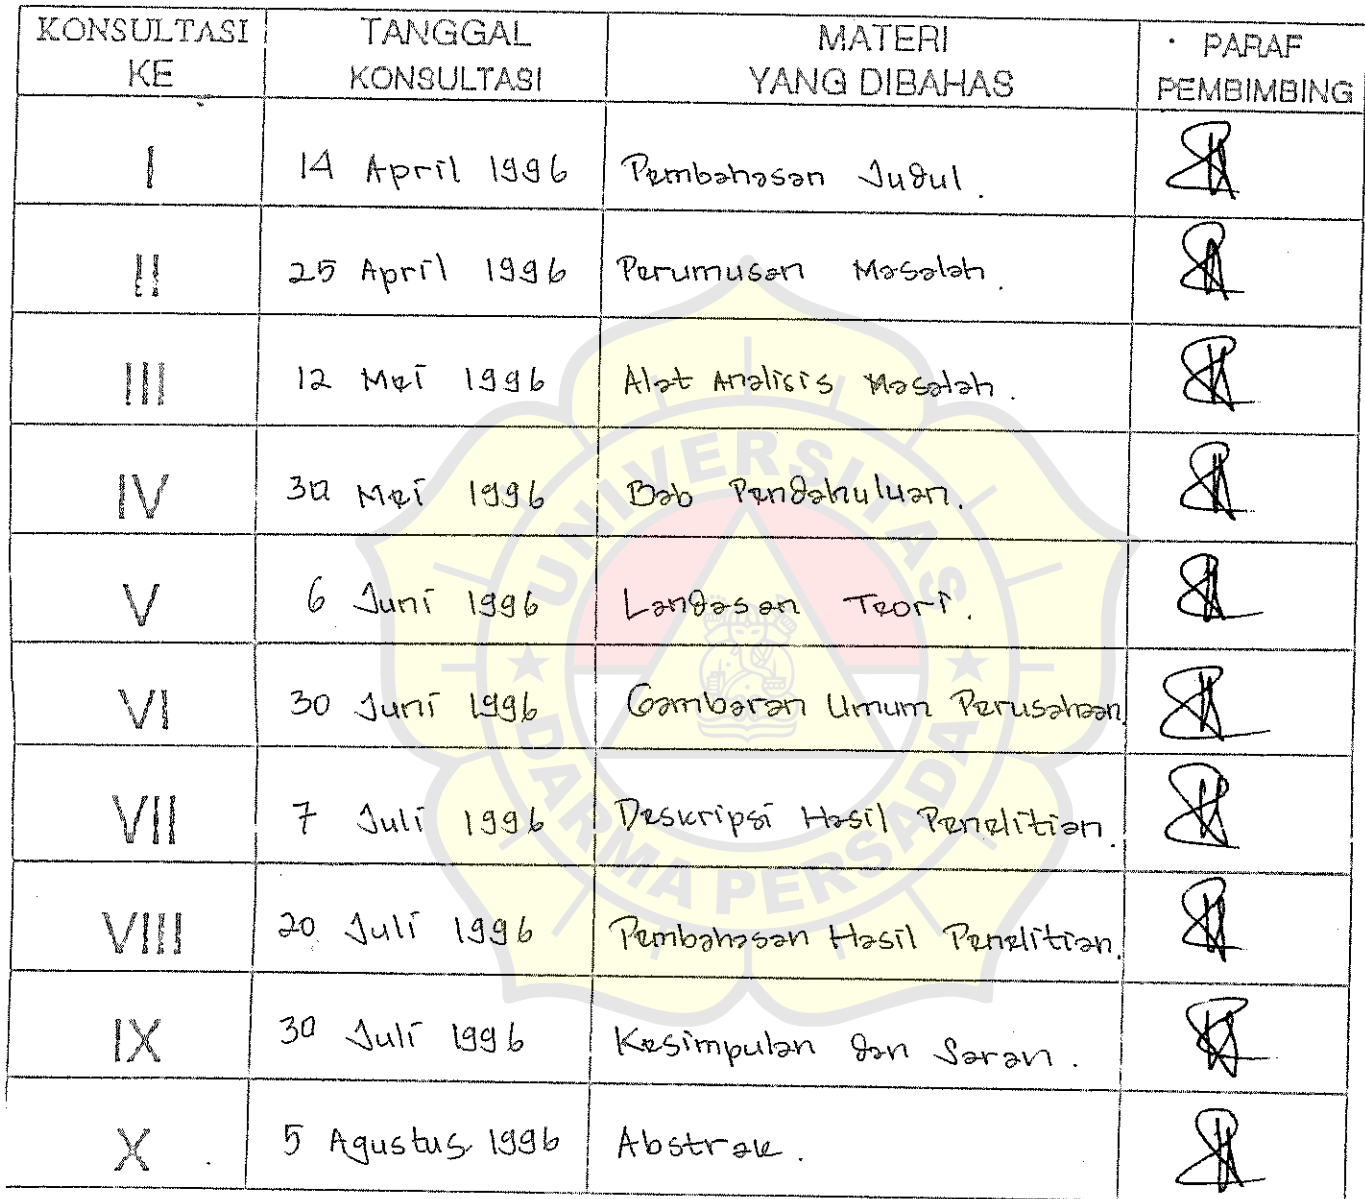 KONSULTASI KE | TANGGAL KONSULTASI | MATERI YANG DIBAHAS | PARAF PEMBIMBING
I | 14 April 1996 | Pembahasan Judul.
II | 25 April 1996 | Perumusan Masalah.
III | 12 Mei 1996 | Alat Analisis Masalah.
IV | 30 Mei 1996 | Bab Pendahuluan.
V | 6 Juni 1996 | Landasan Teori.
VI | 30 Juni 1996 | Gambaran Umum Perusahaan.
VII | 7 Juli 1996 | Deskripsi Hasil Penelitian.
VIII | 20 Juli 1996 | Pembahasan Hasil Penelitian.
IX | 30 Juli 1996 | Kesimpulan dan Saran.
X | 5 Agustus 1996 | Abstrak.
UNIVERSITAS
DARMA PERSADA